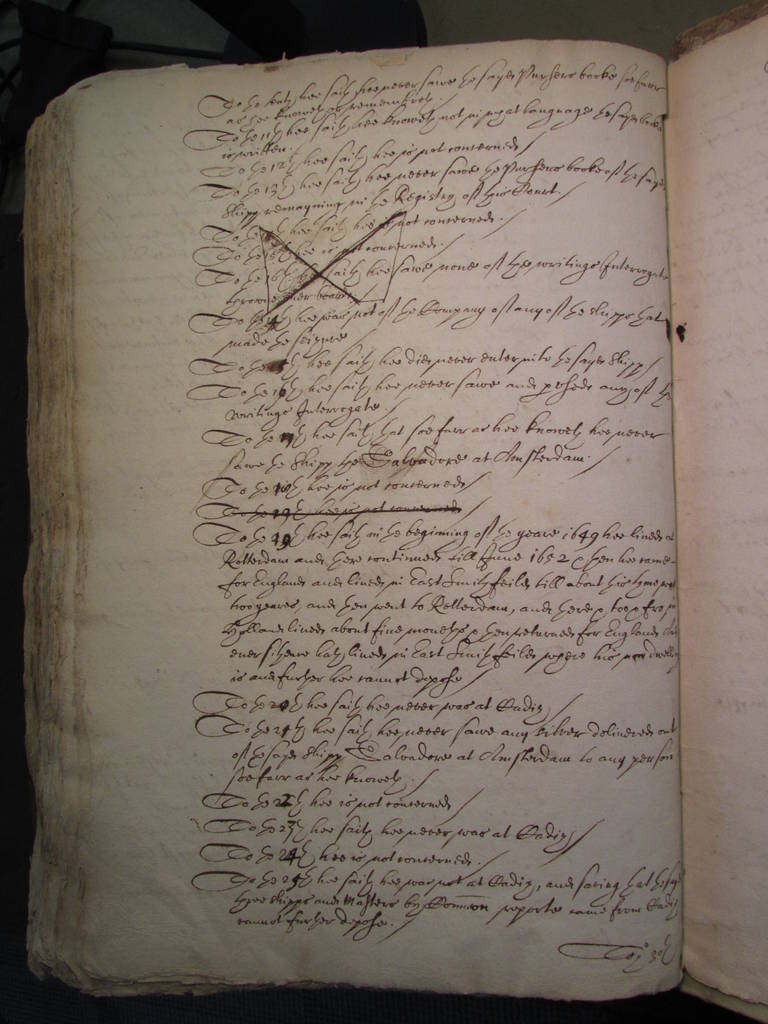 To the 10th hee saith hee never sawe the sayd Pursers booke soe farr
as hee knoweth or remembreth
To the 11th hee saith hee knoweth not in what language the sayd booke
is written.
To the 12th hee saith hee is not concerned
To the 13th hee saith hee never sawe the Pursers booke of the sayd
Shipp remayning in the Registry of this Court.
To the hee saith hee is not concerned.
To the 15th hee is not concerned.
To the 16th hee saith hee sawe none of the writings Interrogate
throwne over board.
To the hee was not of the Company of any of the shipps that
made the seizure
To the hee saith hee did never enter into the sayd Shipp
To the 16th hee saith hee never sawe and perused any of the
writings Interrogate.
To the 17th hee saith that soe farr as hee knoweth hee never
sawe the Shipp the Salvadore at Amsterdam.
To the 18th hee is not concerned
To the 19th hee is not concerned
To the 19th hee saith in the beginning of the yeare 1649 hee lived at
Rotterdam and there continued till June 1652 & then hee came
for England and lived in East Smithfeild till about this tyme
two yeares, and then went to Rotterdam, and there &
Holland lived about five moneths & then returned for England and
ever sithence hath lived in East Smithfeild where his now dwelling
is and further hee cannot depose
To the 20th hee saith hee never was at Cadiz
To the 21th hee saith hee never sawe any silver delivered out
of the sayd Shipp Salvadore at Amsterdam to any person
soe farr as hee knoweth.
To the 22th hee is not concerned
To the 23th hee saith hee never was at Cadiz
To the 24th hee is not concerned.
To the 25th hee saith hee was not at Cadiz, and saving that the sayd
three shipps and Masters by Common reporte came from Cadiz
cannot further depose.
To ye 30th